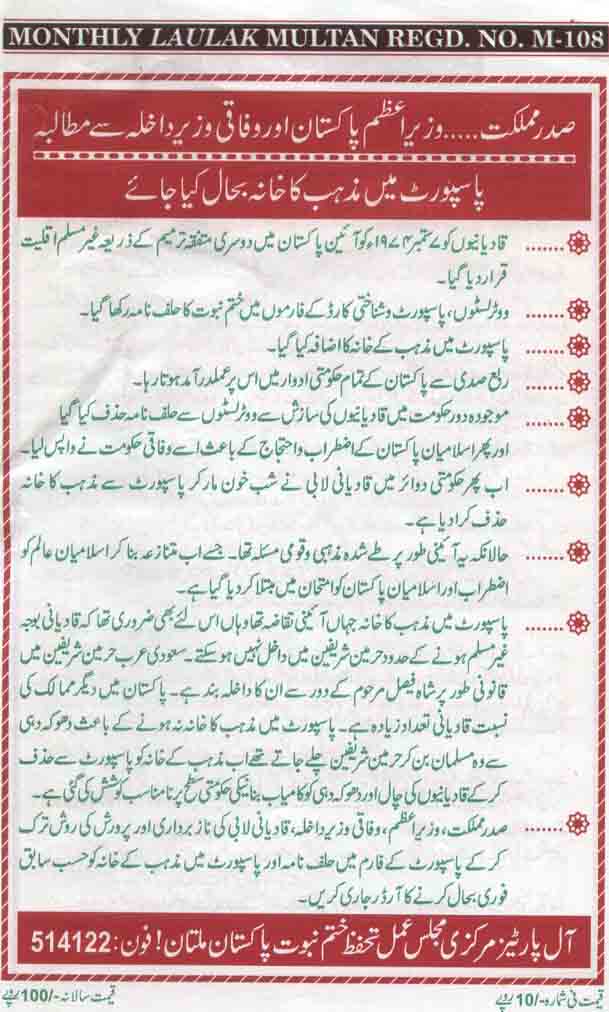 MONTHLY LAULAK MULTAN REGD. NO. M-108
صدر مملکت.....وزیر اعظم پاکستان اور وفاقی وزیر داخلہ سے مطالبہ
پاسپورٹ میں مذہب کا خانہ بحال کیا جائے
....... قادیانیوں کو ۷ ستمبر ۱۹۷۴ء کو آئین پاکستان میں دوسری متفقہ ترمیم کے ذریعہ غیر مسلم اقلیت
قرار دیا گیا۔
....... ووٹرلسٹوں، پاسپورٹ و شناختی کارڈ کے فارموں میں ختم نبوت کا حلف نامہ رکھا گیا۔
....... پاسپورٹ میں مذہب کے خانہ کا اضافہ کیا گیا۔
....... ربع صدی سے پاکستان کے تمام حکومتی ادوار میں اس پر عملدرآمد ہوتا رہا۔
....... موجودہ دور حکومت میں قادیانیوں کی سازش سے ووٹرلسٹوں سے حلف نامہ حذف کیا گیا
اور پھر اسلامیان پاکستان کے اضطراب و احتجاج کے باعث اسے وفاقی حکومت نے واپس لیا۔
....... اب پھر حکومتی دوائر میں قادیانی لابی نے شب خون مار کر پاسپورٹ سے مذہب کا خانہ
حذف کرا دیا ہے۔
....... حالانکہ یہ آئینی طور پر طے شدہ مذہبی و قومی مسئلہ تھا۔ جسے اب متنازعہ بنا کر اسلامیان عالم کو
اضطراب اور اسلامیان پاکستان کو امتحان میں مبتلا کر دیا گیا ہے۔
....... پاسپورٹ میں مذہب کا خانہ جہاں آئینی تقاضہ تھا وہاں اس لئے بھی ضروری تھا کہ قادیانی بوجہ
غیر مسلم ہونے کے حدود حرمین شریفین میں داخل نہیں ہو سکتے۔ سعودی عرب حرمین شریفین میں
قانونی طور پر شاہ فیصل مرحوم کے دور سے ان کا داخلہ بند ہے۔ پاکستان میں دیگر ممالک کی
نسبت قادیانی تعداد زیادہ ہے۔ پاسپورٹ میں مذہب کا خانہ نہ ہونے کے باعث دھوکہ دہی
سے وہ مسلمان بن کر حرمین شریفین چلے جاتے تھے اب مذہب کے خانہ کو پاسپورٹ سے حذف
کر کے قادیانیوں کی چال اور دھوکہ دہی کو کامیاب بنانیکی حکومتی سطح پر نامناسب کوشش کی گئی ہے۔
....... صدر مملکت، وزیر اعظم، وفاقی وزیر داخلہ، قادیانی لابی کی ناز برداری اور پرورش کی روش ترک
کر کے پاسپورٹ کے فارم میں حلف نامہ اور پاسپورٹ میں مذہب کے خانہ کو حسب سابق
فوری بحال کرنے کا آرڈر جاری کریں۔
آل پارٹیز مرکزی مجلس عمل تحفظ ختم نبوت پاکستان ملتان! فون: 514122
قیمت فی شمارہ -/10 روپے
قیمت سالانہ -/100 روپے